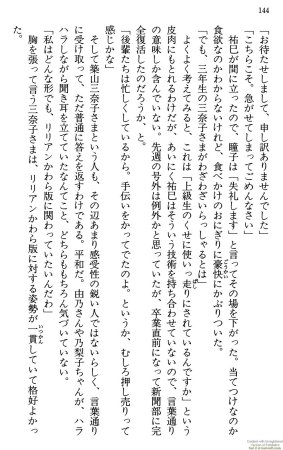 144
「お待たせしまして、申し訳ありませんでした」
「こちらこそ。急がせてしまってごめんなさい」
祐巳が間に立ったので、瞳子は「失礼します」と言ってその場を下がった。当てつけなのか
食欲なのかわからないけれど、食べかけのおにぎりに豪快にかぶりついた。
「でも、三年生の三奈子さまがわざわざいらっしゃるとは」
よくよく考えてみると、これは「上級生のくせに使いっ走りにされているんですか」という
皮肉にもとれるわけだが、あいにく祐巳はそういう技術を持ち合わせていないので、言葉通り
の意味しか含んでいない。先週の号外は例外かと思っていたが、卒業直前になって新聞部に完
全復活したのだろうか、と。
「後輩たちは忙しくしているから。手伝いをかってでたのよ。というか、むしろ押し売りって
感じかな」
そして築山三奈子さまという人も、その辺あまり感受性の鋭い人ではないらしく、言葉通り
に受け取って、ただ普通に答えを返すわけである。平和だ。由乃さんや乃梨子ちゃんが、ハラ
ハラしながら聞き耳を立てていたなんてこと、どちらももちろん気づいていない。
「私はどんな形でも、リリアンかわら版に関わっていたいんだわ」
胸を張って言う三奈子さまは、リリアンかわら版に対する姿勢が一貫していて格好よかっ
た。